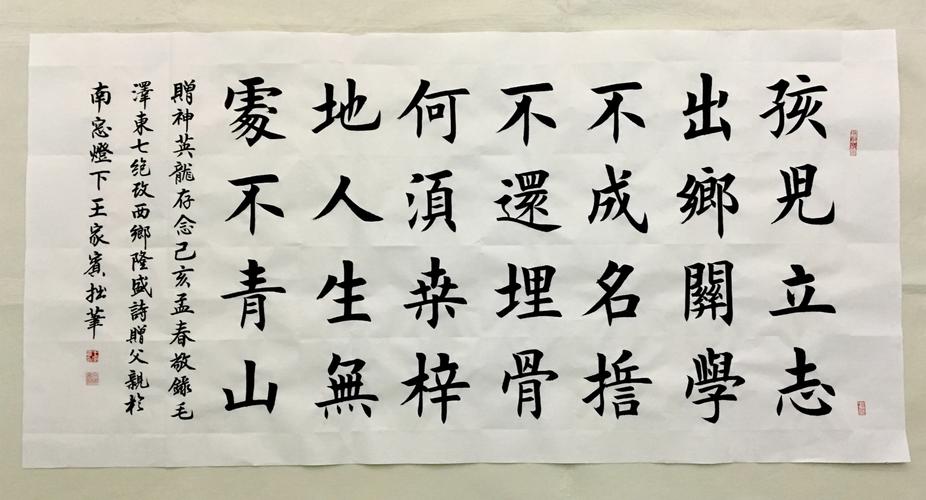 孩児立志
出鄉關學
不成名誓
不還埋骨
何須桒梓
地人生無
處不青山
贈神英龍存念己亥孟春敬錄毛
澤東七绝改西鄉隆盛詩贈父親於
南窓燈下王家賓拙筆